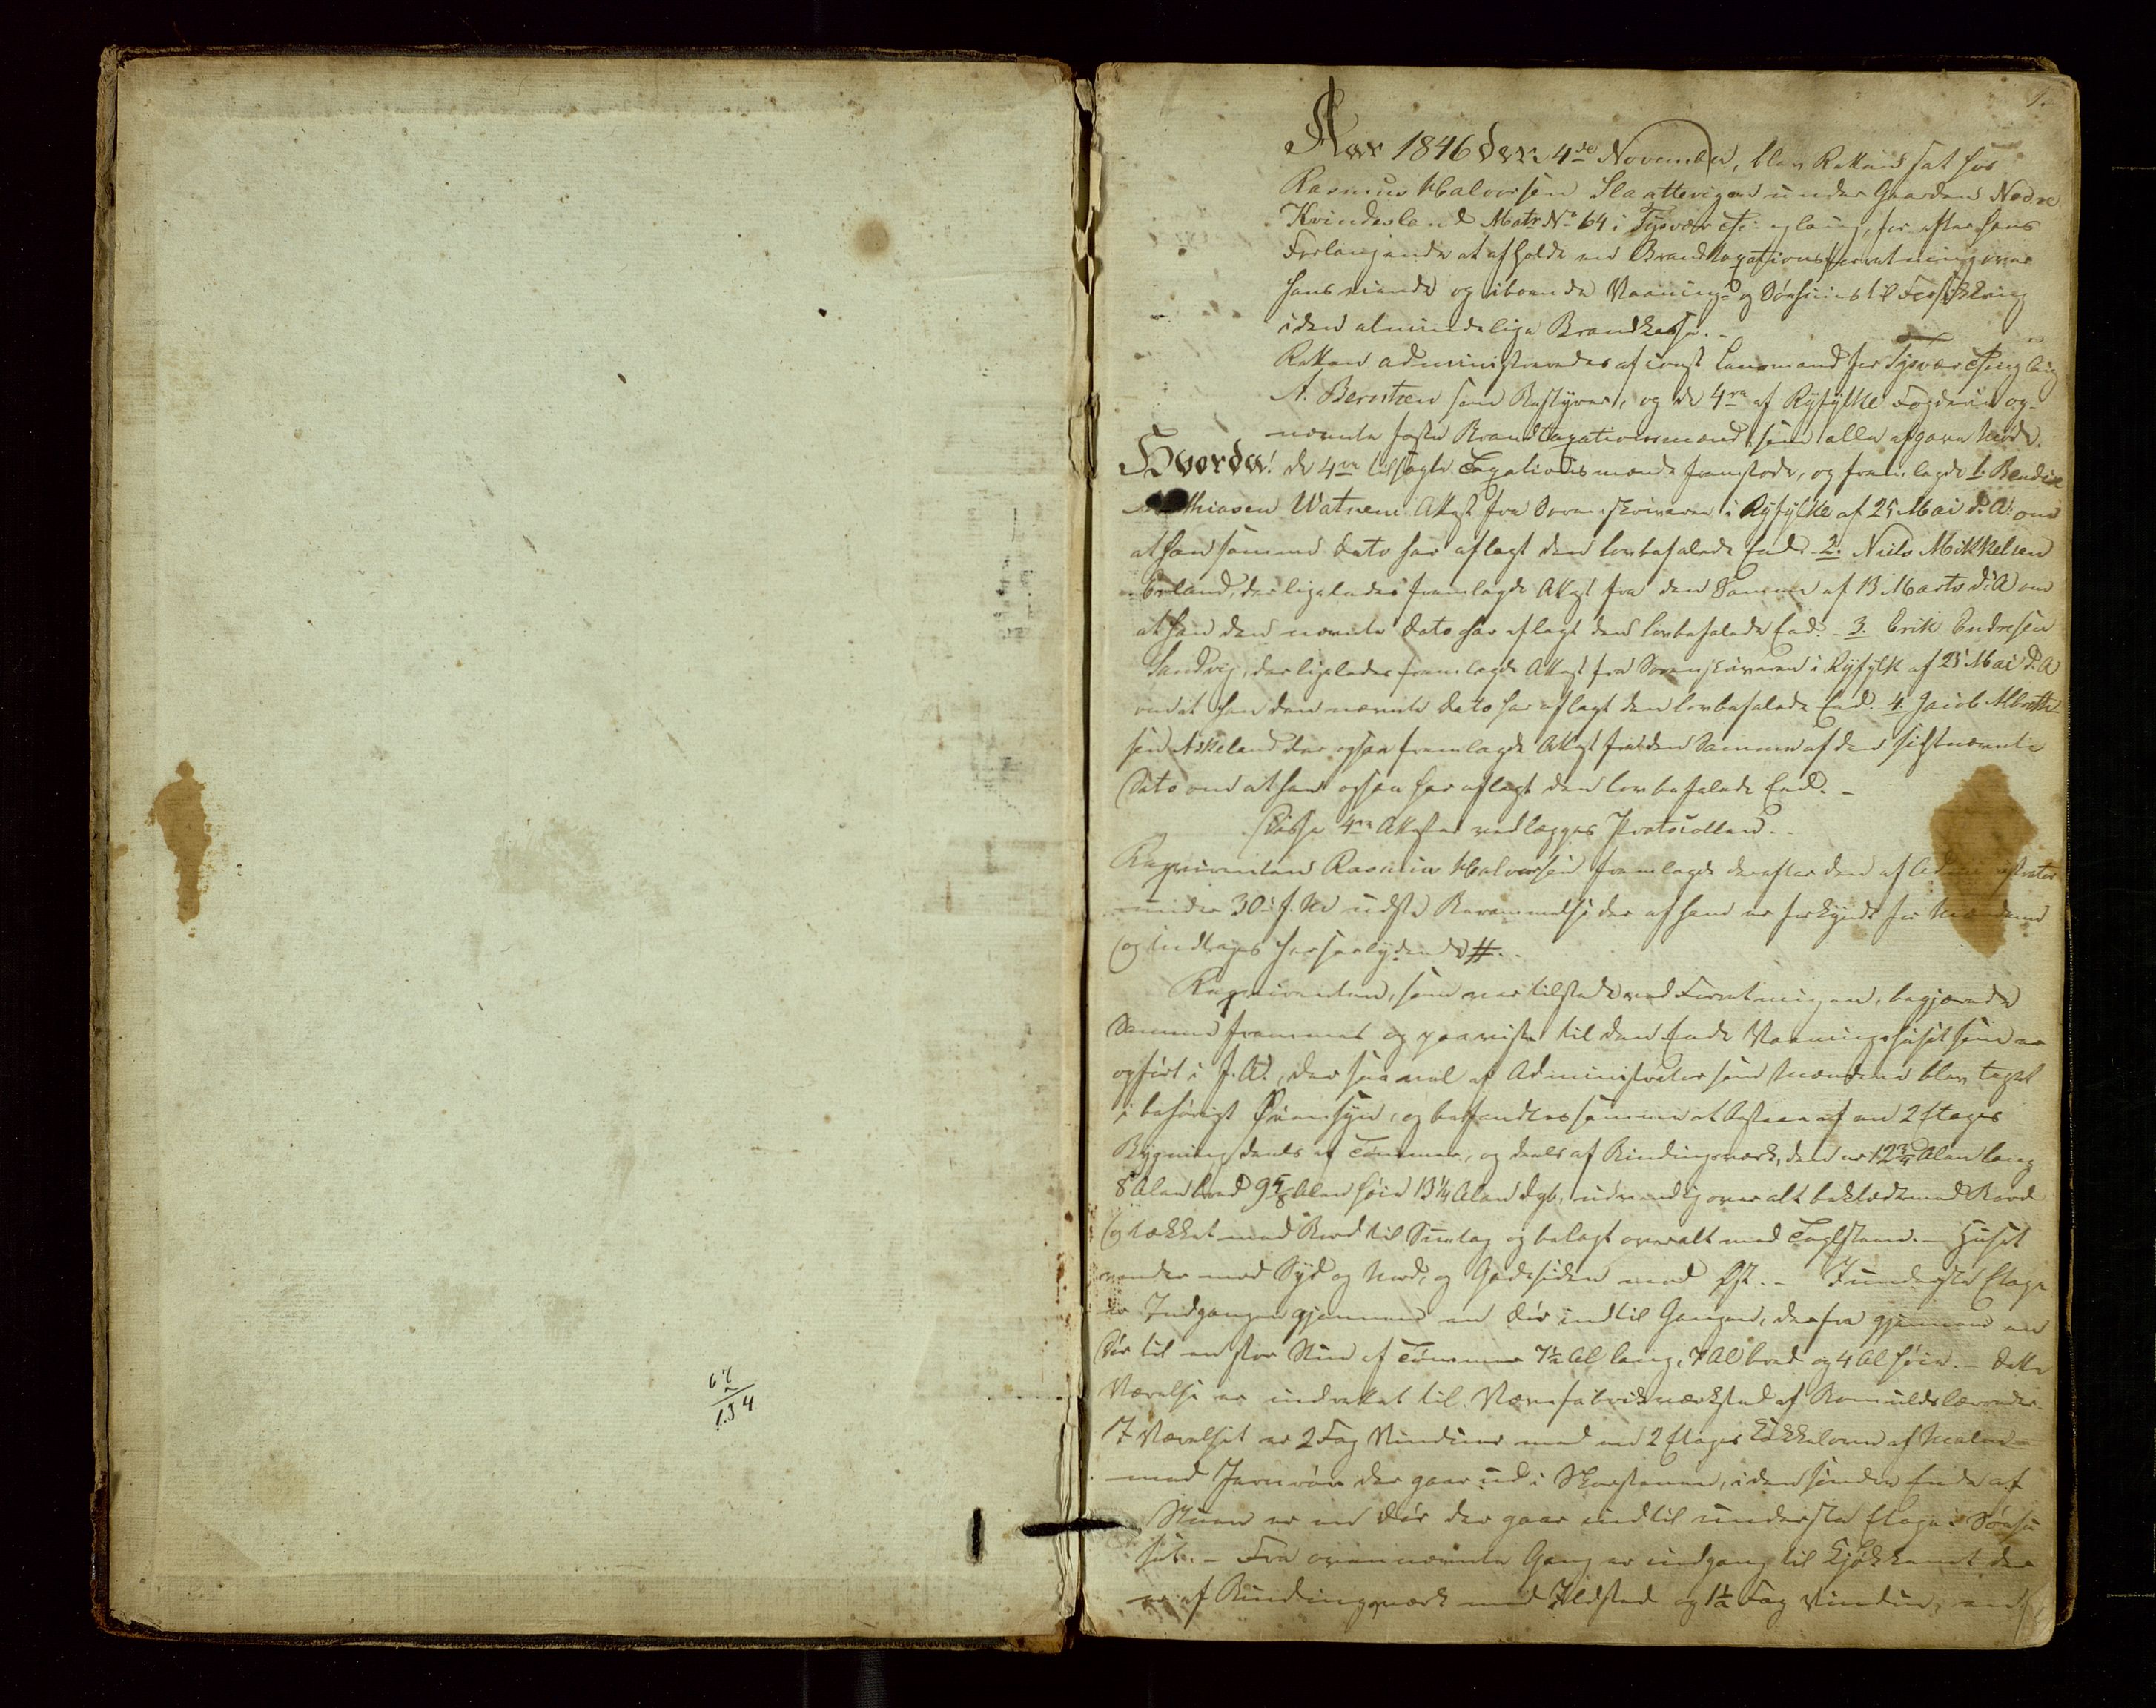 1.
Aar 1846 den 4de November, blev Retten sat hos
Rasmus Halvorsen Slaattevigen under Gaarden Nedre
Kvindesland Matr No 64 i Tysvær Thinglaug, for efter hans
Forlangende at afholde en Brandtaxationsforretning over
hans eiende og iboende Vaaning- og Søehuus til Forsikkring
i den almindelige Brandkasse. -
Retten administreredes af const Lensmand for Tysvær Thinglaug
A. Berntsen som Bestyrer, og de 4re af Ryfylke Fogderie op-
nævnte faste Brandtaxationsmænd, som alle afgave Møde.
Hvorda! de 4re tilsagte Taxationsmænd fremstode, og fremlagde 1. Bendix
Mathiasen Watnem Attest fra Sorenskriveren i Ryfylke af 25 Mai d. A. om
at han samme Dato har aflagt den lovbefalede Eed. 2. Niels Mikkelsen
Erland, der ligeledes fremlagde Attest fra den Samme af 13 Marts d. A om
at han den nævnte Dato har aflagt den lovbefalede Eed. - 3. Erik Endresen
Sandvig, der ligeledes fremlagde Attest fra Sorenskriveren i Ryfylke af 25 Mai d. A
om at han den nævnte Dato har aflagt den lovbefalede Eed. 4. Jacob Albreth-
sen Askeland der ogsaa fremlagde Attest fra den Samme af den sistnævnte
Dato om at han ogsaa har aflagt den lovbefalede Eed. -
Disse 4re Attester vedlægges Protocollen. -
Reqvirenten Rasmus Halvorsen fremlagde derefter den af Administrator
under 30 f. M udstæ Berammelse der af ham er forkyndt for Mændene
og indtages her saalydende #.
Reqvirenten, som var tilstede ved Forretningen, begjærede
Samme fremmet og paaviste til den Ende Vaaningshuset som er
opført i f. A., der saavel af Administrator som Mændene blev taget
i behørigt Øiensyn, og befandtes samme at bestaae af en 2 Etages
Bygning deels af Tømmer, og deels af Bindingsværk, den er 12 3/4 Alen lang
8 Alen bred 9 5/8 Alen høi 13 1/4 Alen dyb, udvendig overalt beklædt med Bord
og tækket med Bord til Suetag og belagt overalt med Taglsteen. - Huset
vender mod Syd og Nord, og Gadesiden mod Øst. - I underste Etage
er Indgangen gjennem en Dør ind til Gangen, derfra gjennem en
Dør til en stor Stue af Tømmer 7 1/2 Al lang, 7 Al bred og 4 Al høi. - Dette
Værelse er indrettet til Værefabrikværksted af Bomuldslærreder.
I Værelset er 2 Fag Vinduer med en 2 Etages Kakkelovn af Malm
med Jernrør der gaar ud i Skorstenen, i den søndre Ende af
Stuen er en Dør der gaar ind til underste Etage i Søehu-
set. - Fra ovennævnte Gang er indgang til Kjøkkenet der
er af Bindingsværk med Ildsted og 1 1/2 Fag Vindue, en
67
2
134